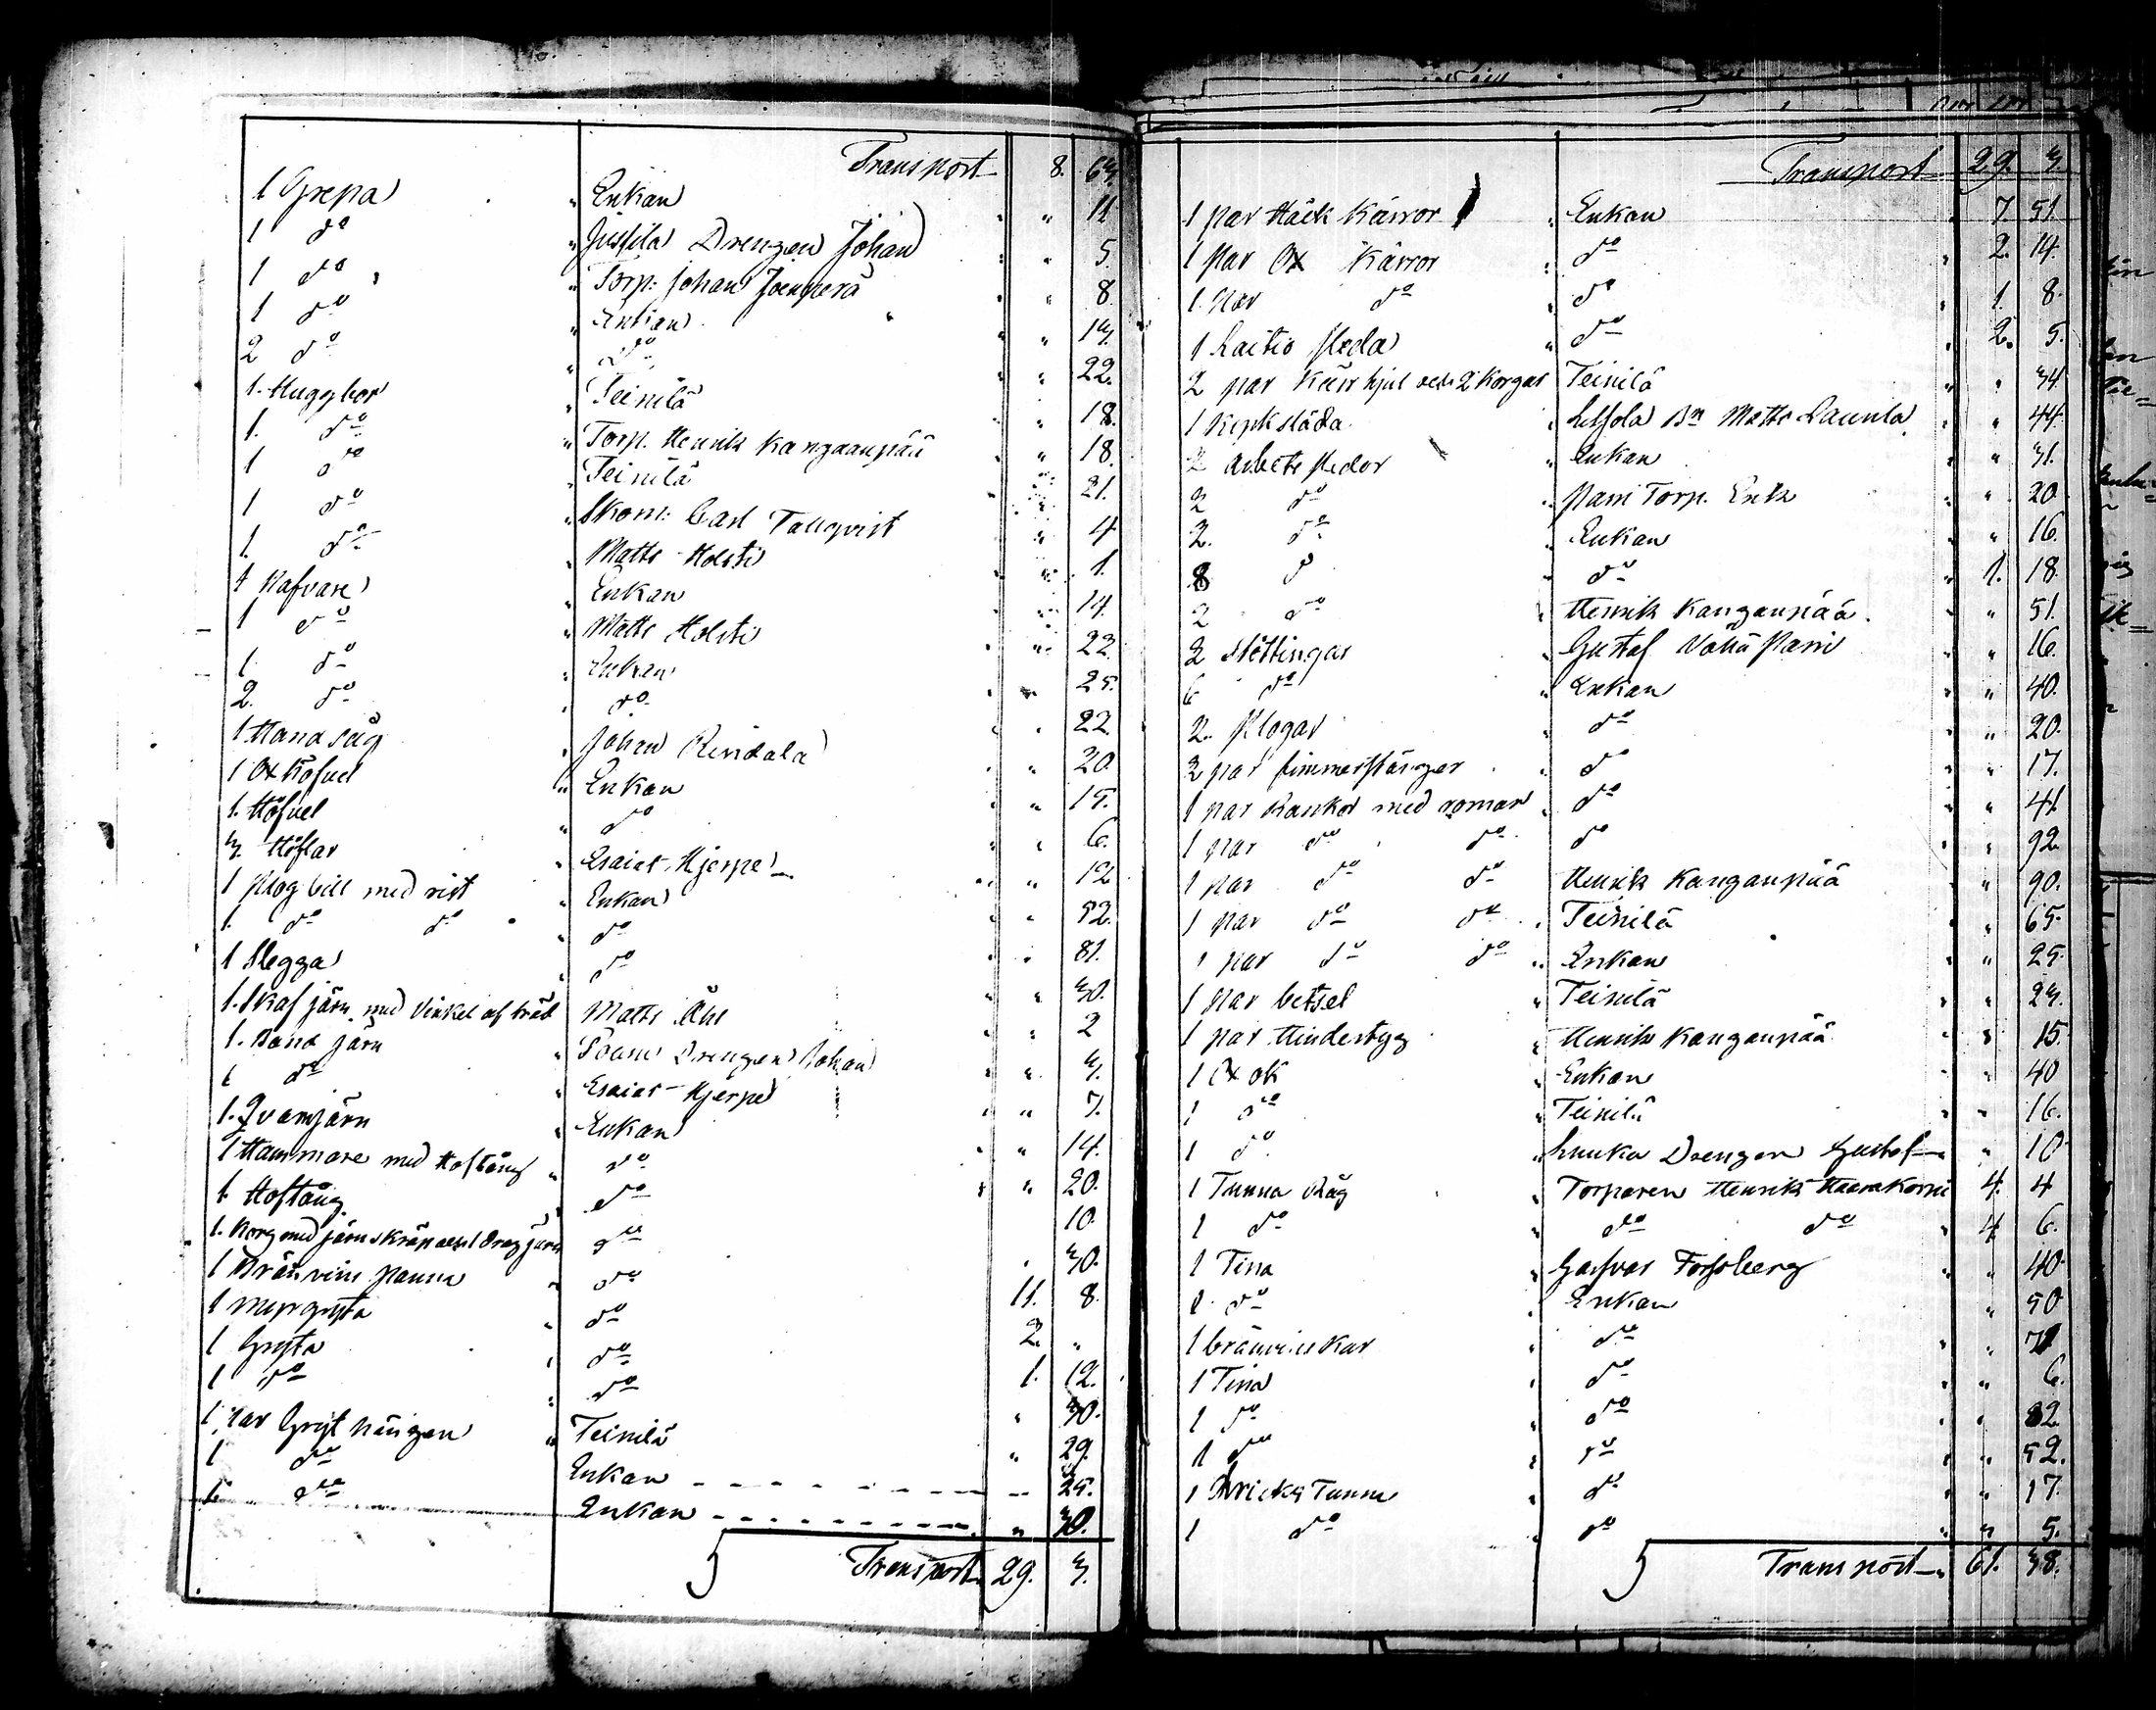 Transport 8. 63.
1 Grepa Enkan " 11
1 do Jussila Drengen Johan " 5.
1 do Torp. Johan " 8.
1 do Enkan " 13.
2 do do " 22.
1. Huggbor Teinilä " 18.
1. do Torp. Henrik Kangaanpää " 18.
1 do Teinilä 21.
1 do Skom: Carl Tallqvist " 4
1. do Matts Holsti " 1.
4 Nafvare Enkan " 14.
1 do Matts Holsti " 22.
1. do Enkan " 25.
2. do do " 22.
1 Handsåg Johan Rindala " 20.
1 Ox Höfvel Enkan " 15.
1. Höfvel do " 6.
3. Höflar Esaias Hjerpe " 12
1 Plog bill med rist Enkan " 52.
1. do do do " 81.
1 Slegga do " 30.
1. Skaf järn med Vinkel af träd Matts Åhl " 2
1. Band järn Drengen Johan " 3.
1 do Esaias Hjerpe " 7.
1. Qvarnjärn Enkan " 14.
1 Hammare med Hoftång do " 20.
1. Hoftång do 10.
1. Korg med järnskräp do " 30.
1 Bränvins Panna do 11. 8.
1 do 2. "
1 Gryta do 1. 12.
1 do do " 30.
1. par Gryt hängen Teinilä " 29.
1 do Enkan " 25.
1. do Enkan " 30.
Transport 29. 3.
Transport 29. 3.
1 par Häck Kärror Enkan 7. 51
1 par Ox Kärror do 2. 14.
1. par do do 1. 8.
1 Laitio släda do 2. 5.
2 par Kärrhjul 2 Korgar Teinilä " 34.
1 Kyrk släda Matts Launla " 44.
2 Arbets slädor Enkan " 31.
2 do Passi Torp. Enk " 20
2. do Enkan " 16.
8 do do 1. 18.
2 do Henrik Kanganpää " 51.
2 stöttingar Gustaf Vähä Passi " 16.
6 do Enkan " 40.
2. Plogar do " 20.
2 par do " 17.
1 par Rankor med romar do " 41.
1 par do do do " 92.
1 par do do Henrik Kanganpää " 90.
1 par do do Teinilä " 65.
1 par do do Enkan " 25.
1 par betsel Teinilä " 23.
1 par Henrik Kanganpää " 15.
1 Ox ok Enkan " 40
1 do Teinilä " 16.
1 do Drengen Gustaf " 10
1 Tunna Råg Torparen Henrik 4. 4
1 do do do 4 6.
1 Tina Forssberg " 40
1. do Enkan " 50
1 bränvins kar do "
1 Tina do " 6.
1 do do " 82
1 do do " 52.
1 Dricks Tunna do " 17.
1 do do " 5.
Transport 61. 38.